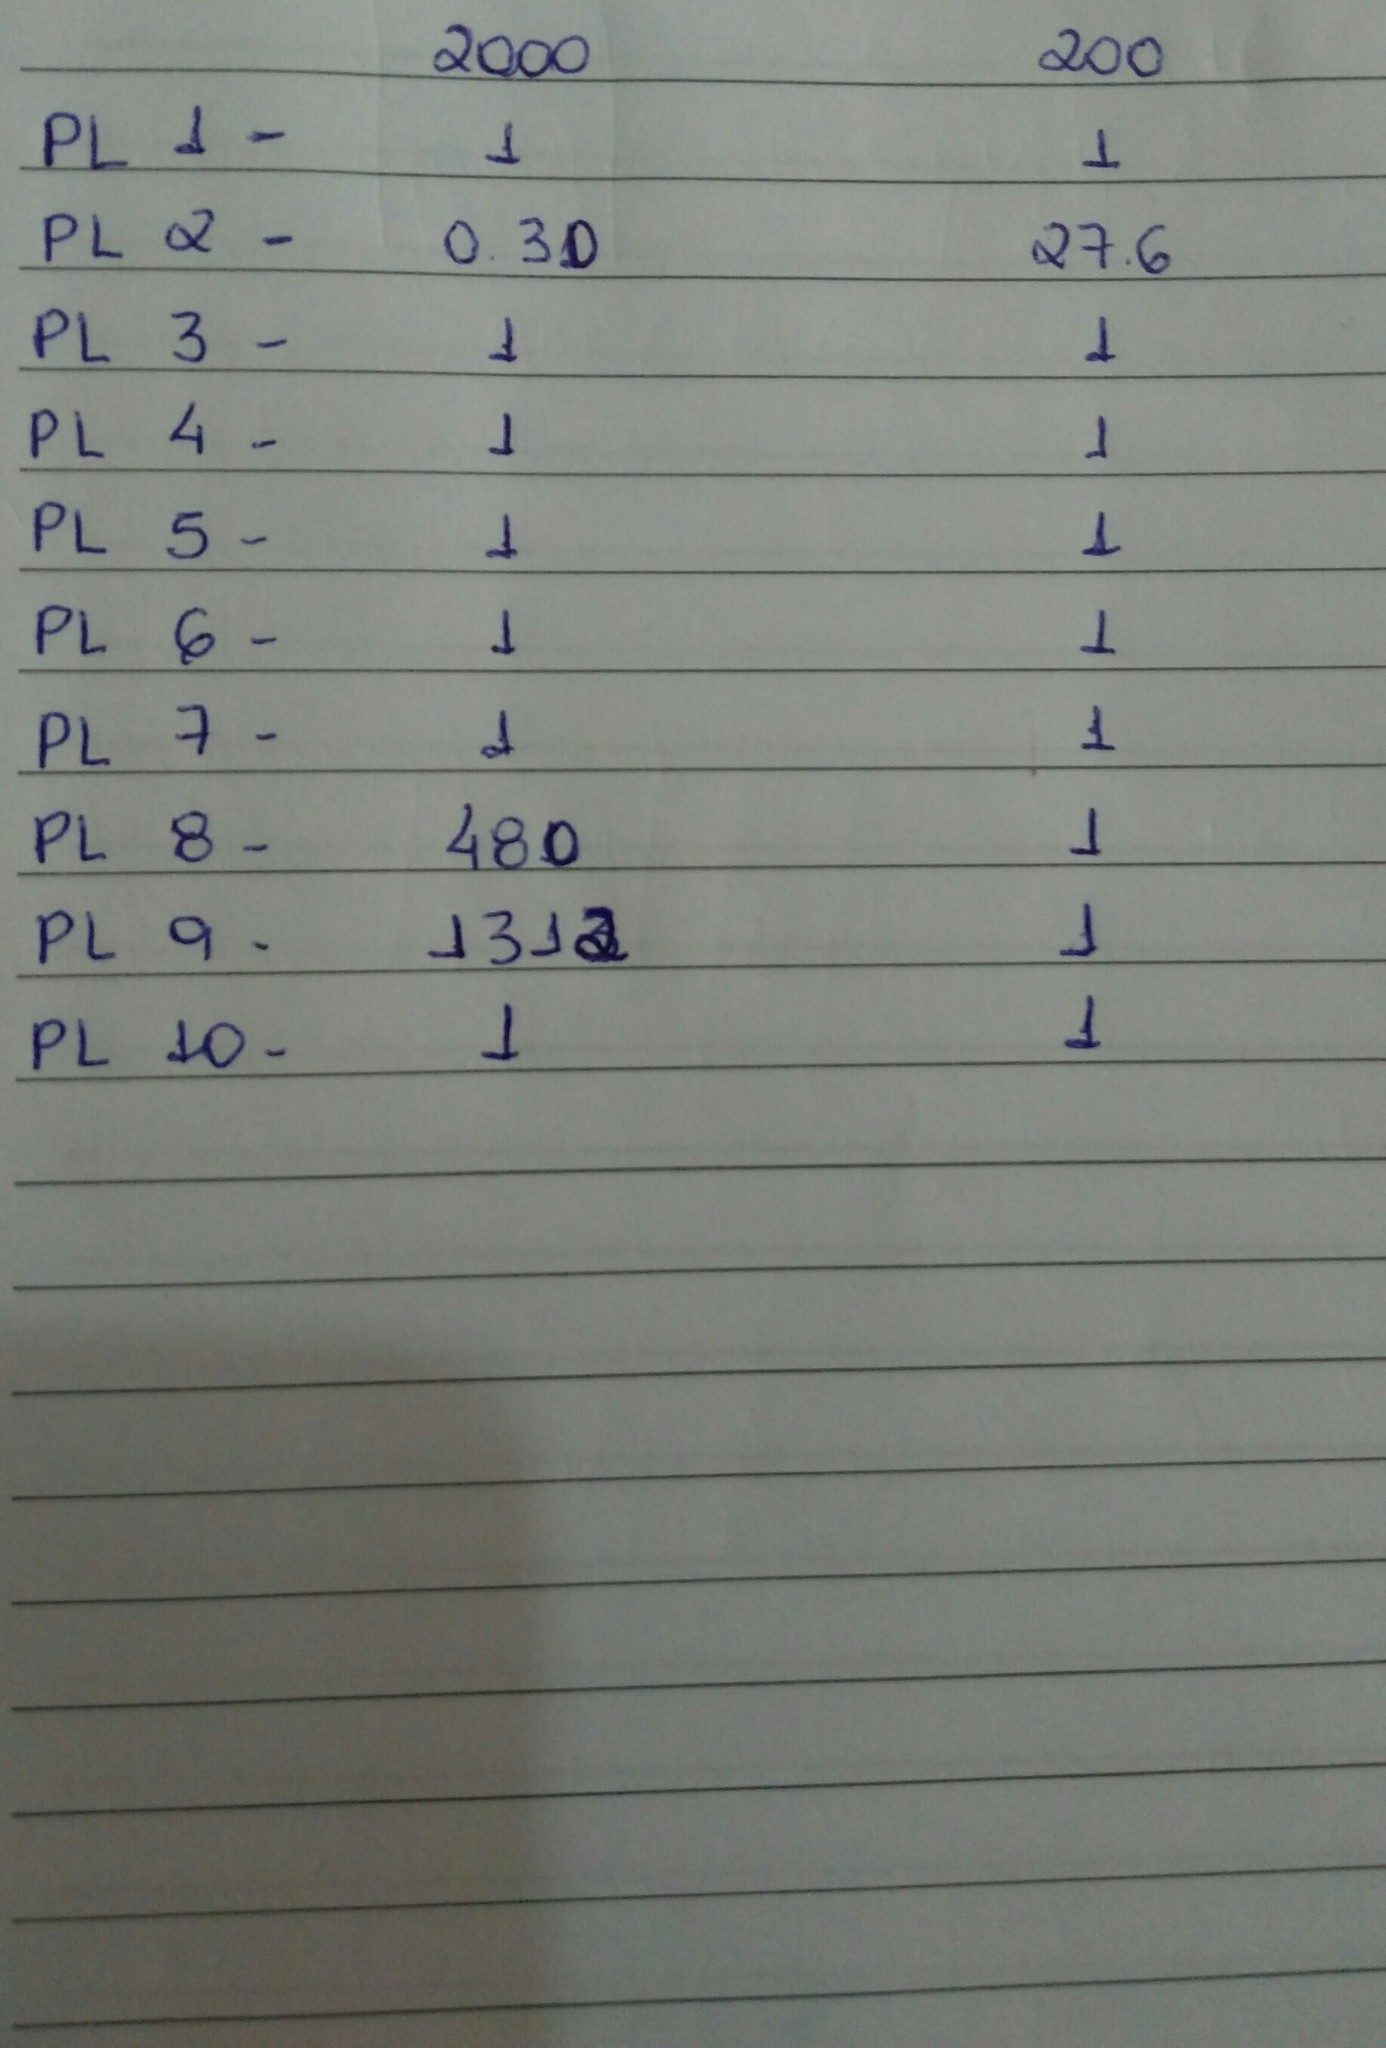 2000 200
PL 1 - 1 1
PL 2 - 0.30 27.6
PL 3 - 1 1
PL 4 - 1 1
PL 5 - 1 1
PL 6 - 1 1
PL 7 - 1 1
PL 8 - 480 1
PL 9 - 1312 1
PL 10 - 1 1